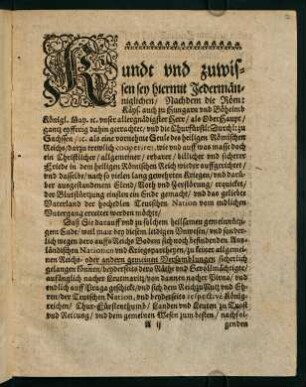 Kundt vnd zuwis-
sen sey hiermit Jedermän-
niglichen / Nachdem die Röm:
Käys. auch zu Hungarn vnd Böheimb
Königl. May. ꝛc. vnser allergnädigster Herr / als Ober Haupt /
gantz eyfferig dahin getrachtet / vnd die Churfürstl: Durchl: zu
Sachssen / ꝛc. als eine vornehme Seule des heiligen Römischen
Reichs / darzu trewlich cooperiret, wie vnd auff was masse doch
ein Christlicher / allgemeiner / erbarer / billicher vnd sicherer
Friede in dem heiligen Römischen Reich wieder auffgerichtet /
vnd dasselbe / nach so vielen lang gewehrten Kriegen / vnd dar-
über ausgestandenem Elend / Noth vnd Zerstörung / erquicket /
der Blutstürtzung einsten ein Ende gemacht / vnd das geliebte
Vaterland der hochedlen Teutschen Nation vom endlichen
Vntergang errettet werden möchte /
Daß Sie darauff vnd zu solchem heilsamen gemeinnützi-
gem Ende / weil man bey diesem leidigen Vnwesen / vnd sonder-
lich wegen dero auffn Reichs Bodem sich noch befindenden Aus-
ländischen Nationen vnd Kriegsheeren / zu keiner allgemei-
nen Reichs- oder andern gemeinen Versamlungen sicherlich
gelangen können / beyderseits dero Räthe vnd Gevollmächtigte /
anfänglich nacher Leutmeritz / von dannen nacher Pirna / vnd
endlich auff Praga geschickt / vnd sich dem Reich zu Nutz vnd Eh-
ren / der Teutschen Nation, vnd beyderseits respectivè König-
reichen / Chur-Fürstenthumb / Landen vnd Leuten zu Trost
vnd Rettung / vnd dem gemeinen Wesen zum besten / nachfol-
A ij genden